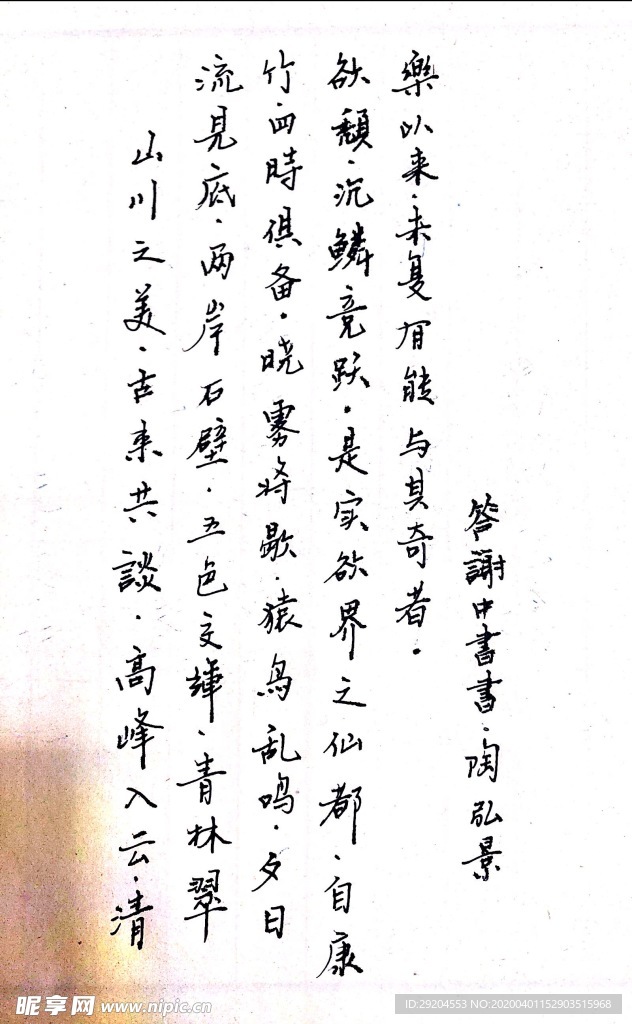 山川之美·古来共談·高峰入云·清
流見底·两岸石壁·五色交輝·青林翠
竹·四時俱备·晓雾将歇·猿鸟乱鸣·夕日
欲頽·沉鳞竞跃·是实欲界之仙都·自康
樂以来·未复有能与其奇者·
答謝中書書·陶弘景
昵享网 www.nipic.cn
ID:29204553 NO:20200401152903515968